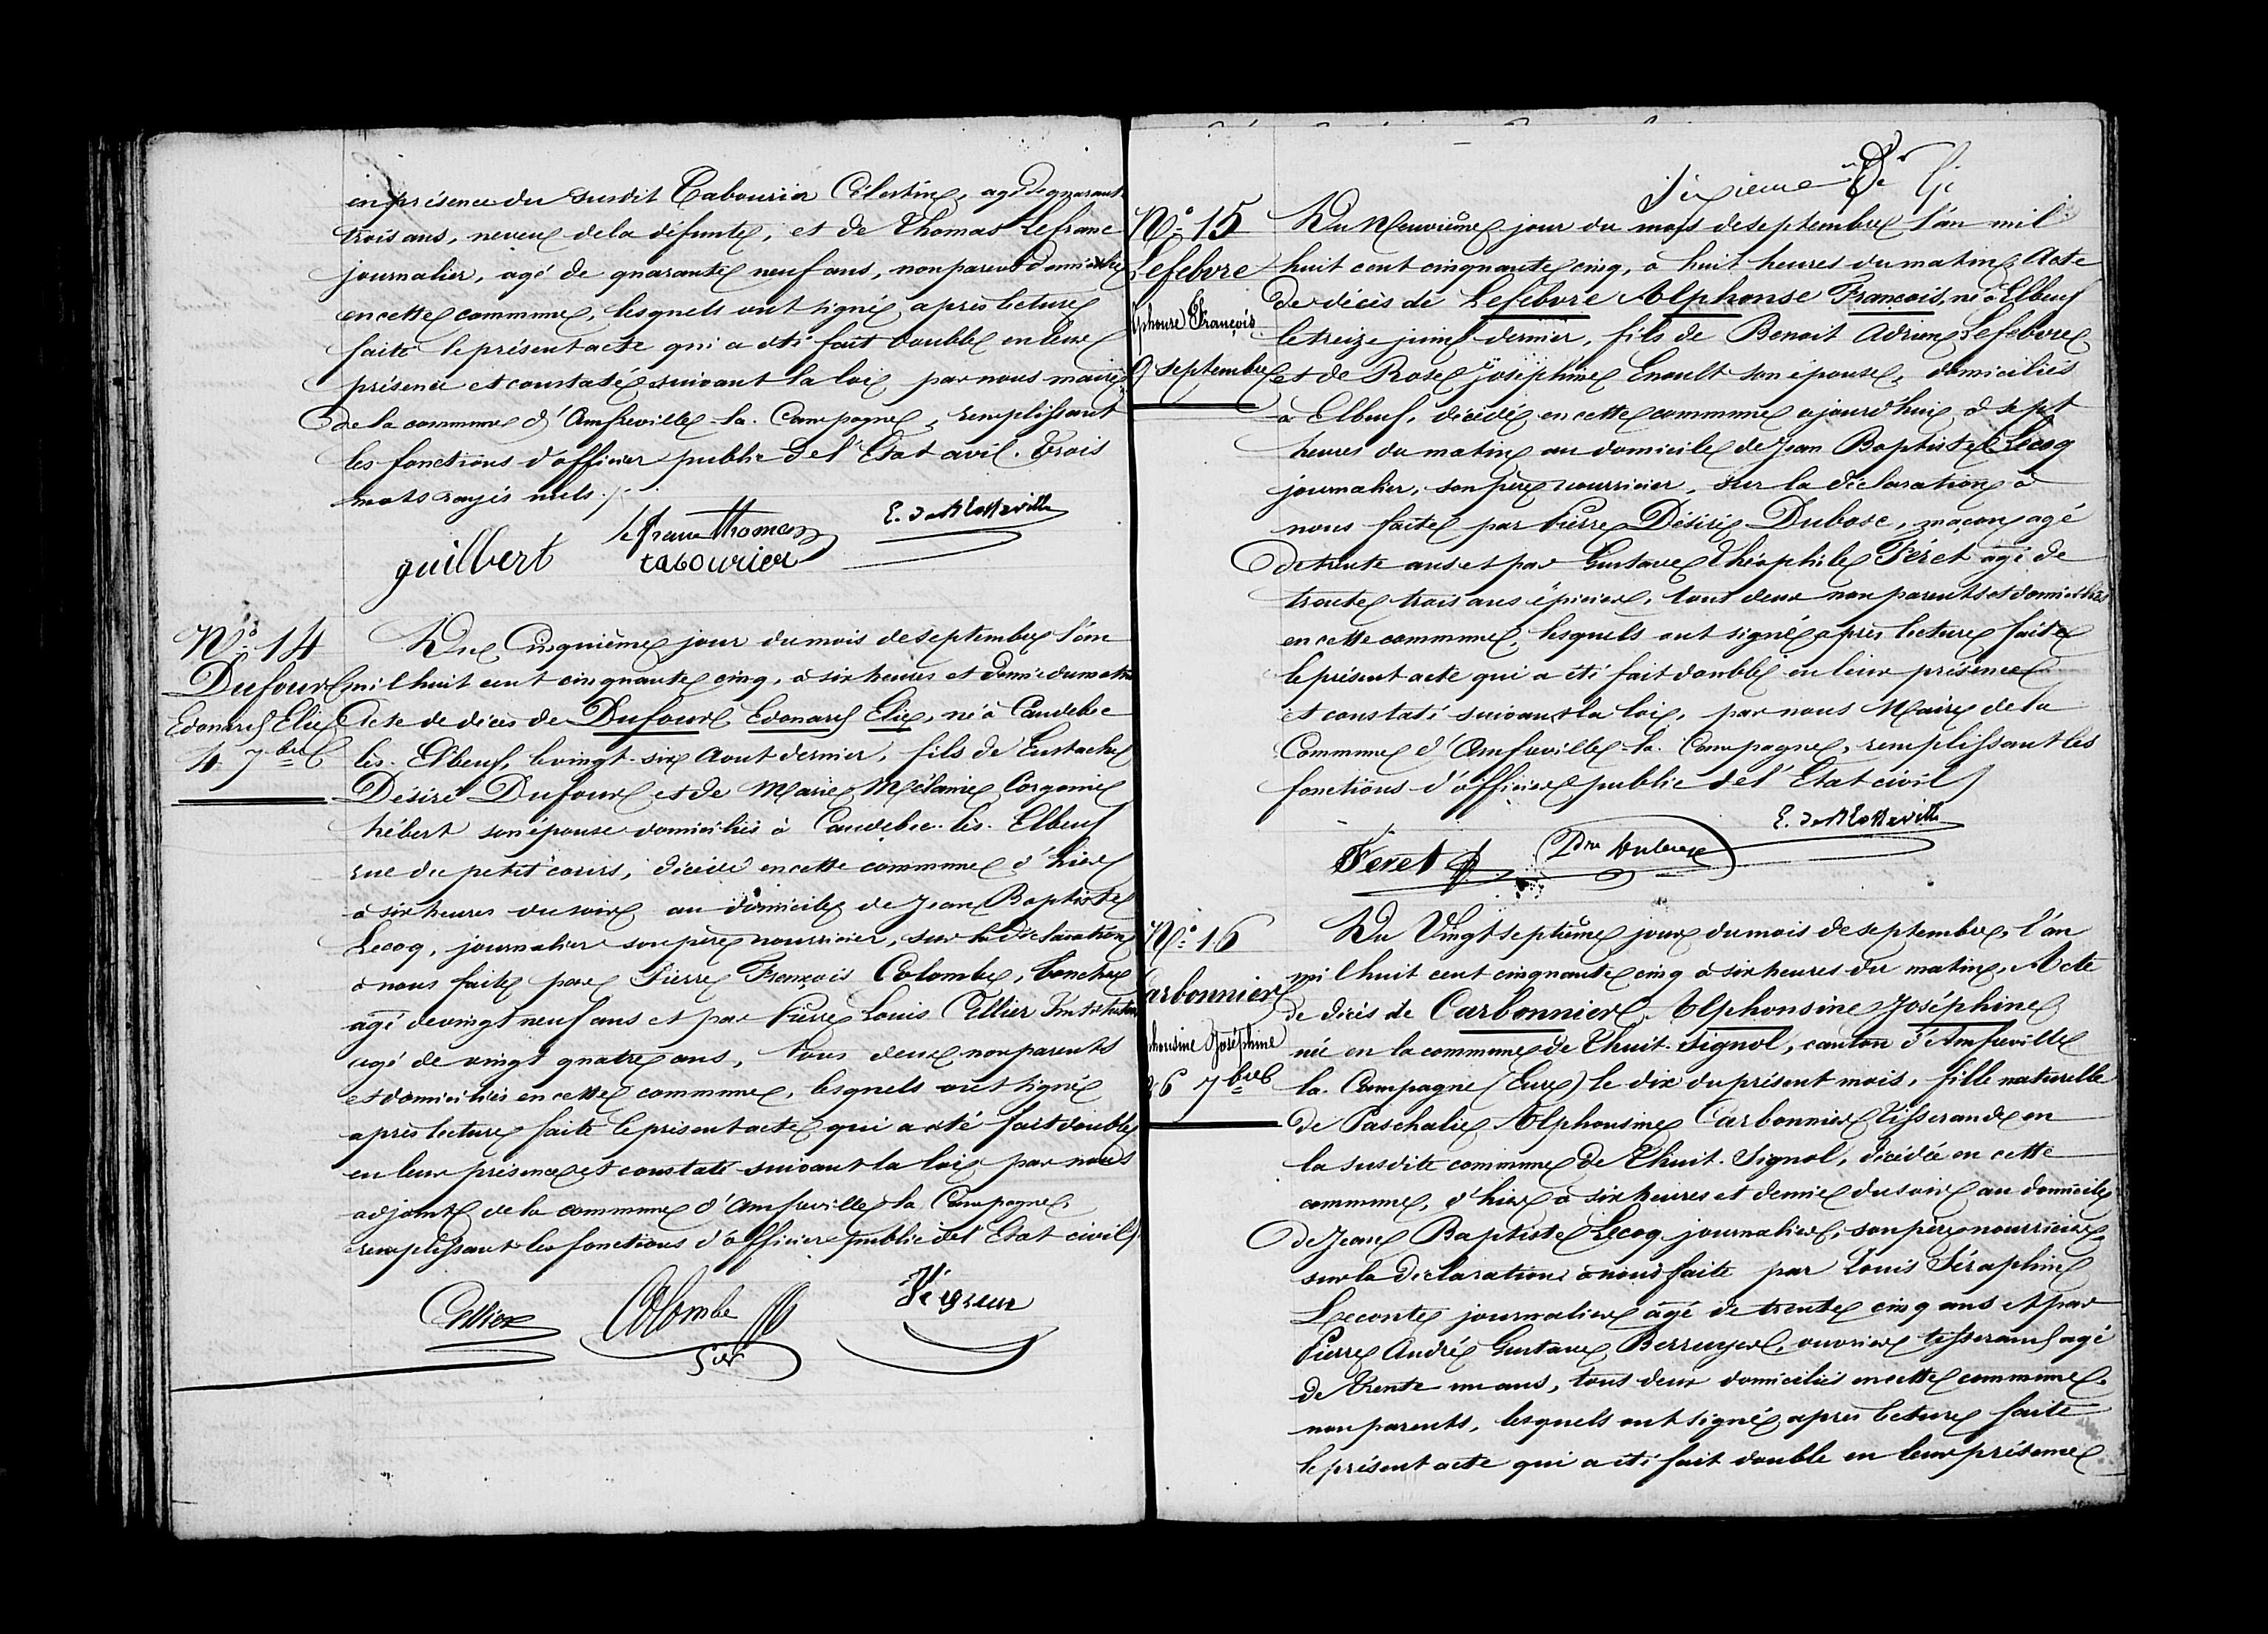 en présence du susdit Tabourier Célestin, agé de quarante
trois ans, neveu de la défunte, et de Thomas Lefranc
journalier, agé de quarante neuf ans, non parent domiciliés
en cette commune, lesquels ont signé après lecture
faite le présent acte qui a été fait double en leur
présence et constaté suivant la loi par nous maire
de la commune d'Amfreville-la-Campagne, remplissant
les fonctions d'officier public de l'Etat civil. Trois
mots rayés nuls.
lefranc Thomas
E. de Blotteville
guilbert
tabourier
N° 14
Dufour
Edouard Elie
4 7bre
Du Cinquième jour du mois de septembre l'an
mil huit cent cinquante cinq, à six heures et demie du matin
Acte de décès de Dufour, Edouard Elie, né à Caudebec
lès-Elbeuf, le vingt-six Aout dernier, fils de Eustache
Désiré Dufour et de Marie Mélanie
hébert son épouse domiciliés à Caudebec-lès-Elbeuf
rue du petit cours, décédé en cette commune d'hier
à six heures du soir au domicile de Jean Baptiste
Lecoq, journalier son père nourricier, sur la déclaration
à nous faite par Pierre François Colombe, boucher
agé de vingt neuf ans et par Pierre Louis Cellier Instituteur
agé de vingt quatre ans, tous deux non parents
et domiciliés en cette commune, lesquels ont signé
après lecture faite le présent acte qui a été fait double
en leur présence et constaté suivant la loi par nous
adjoint de la commune d'Amfreville la Campagne,
remplissant les fonctions d'officier public de l'Etat civil
Cellier
Colombe
N° 15
Lefebvre
phonse François
9 septembre
Du Neuvième jour du mois de septembre l'an mil
huit cent cinquante cinq, à huit heures du matin Acte
de décès de Lefebvre Alphonse François, né à Elbeuf
le treize juin dernier, fils de Benoit Adrien Lefebvre
et de Rose Joséphine Enoult son épouse, domiciliés
à Elbeuf, décédé en cette commune ajourd'hui à sept
heures du matin au domicile de Jean Baptiste Lecoq
journalier, son père nourricier, sur la déclaration à
nous faite par Pierre Désiré Dubosc, maçon agé
de trente ans et par Gustave Théophile Féret agé de
trente trois ans épicier, tout deux non parents et domiciliés
en cette commune, lesquels ont signé après lecture faite
le présent acte qui a été fait double en leur présence
et constaté suivant la loi, par nous Maire de la
Commune d'Amfreville-la-Campagne, remplissant les
fonctions d'officier public de l'Etat civil
E. de Blotteville
Feret
N° 16
arbonnier
phonsine Joséphine
26 7bre
Du Vingt septième jour du mois de septembre, l'an
mil huit cent cinquante cinq à six heures du matin, Acte
de décès de Carbonnier Alphonsine Joséphine
née en la commune de Thuit-Signol, canton d'Amfreville
la-Campagne (Eure) le dix du présent mois, fille naturelle
de Paschalie Alphonsine Carbonnier Tisserande en
la susdite commune de Thuit-Signol, décédée en cette
commune, d'hier à six heures et demie du soir au domicile
de Jean Baptiste Lecoq journalier, son père nourricier
sur la déclaration à nous faite par Louis Séraphin
Leconte journalier âgé de trente cinq ans et par
Pierre André Gustave Berruyer, ouvrier tisserand agé
de trente un ans, tous deux domiciliés en cette commune
non parents, lesquels ont signé après lecture faite
le présent acte qui a été fait double en leur présence